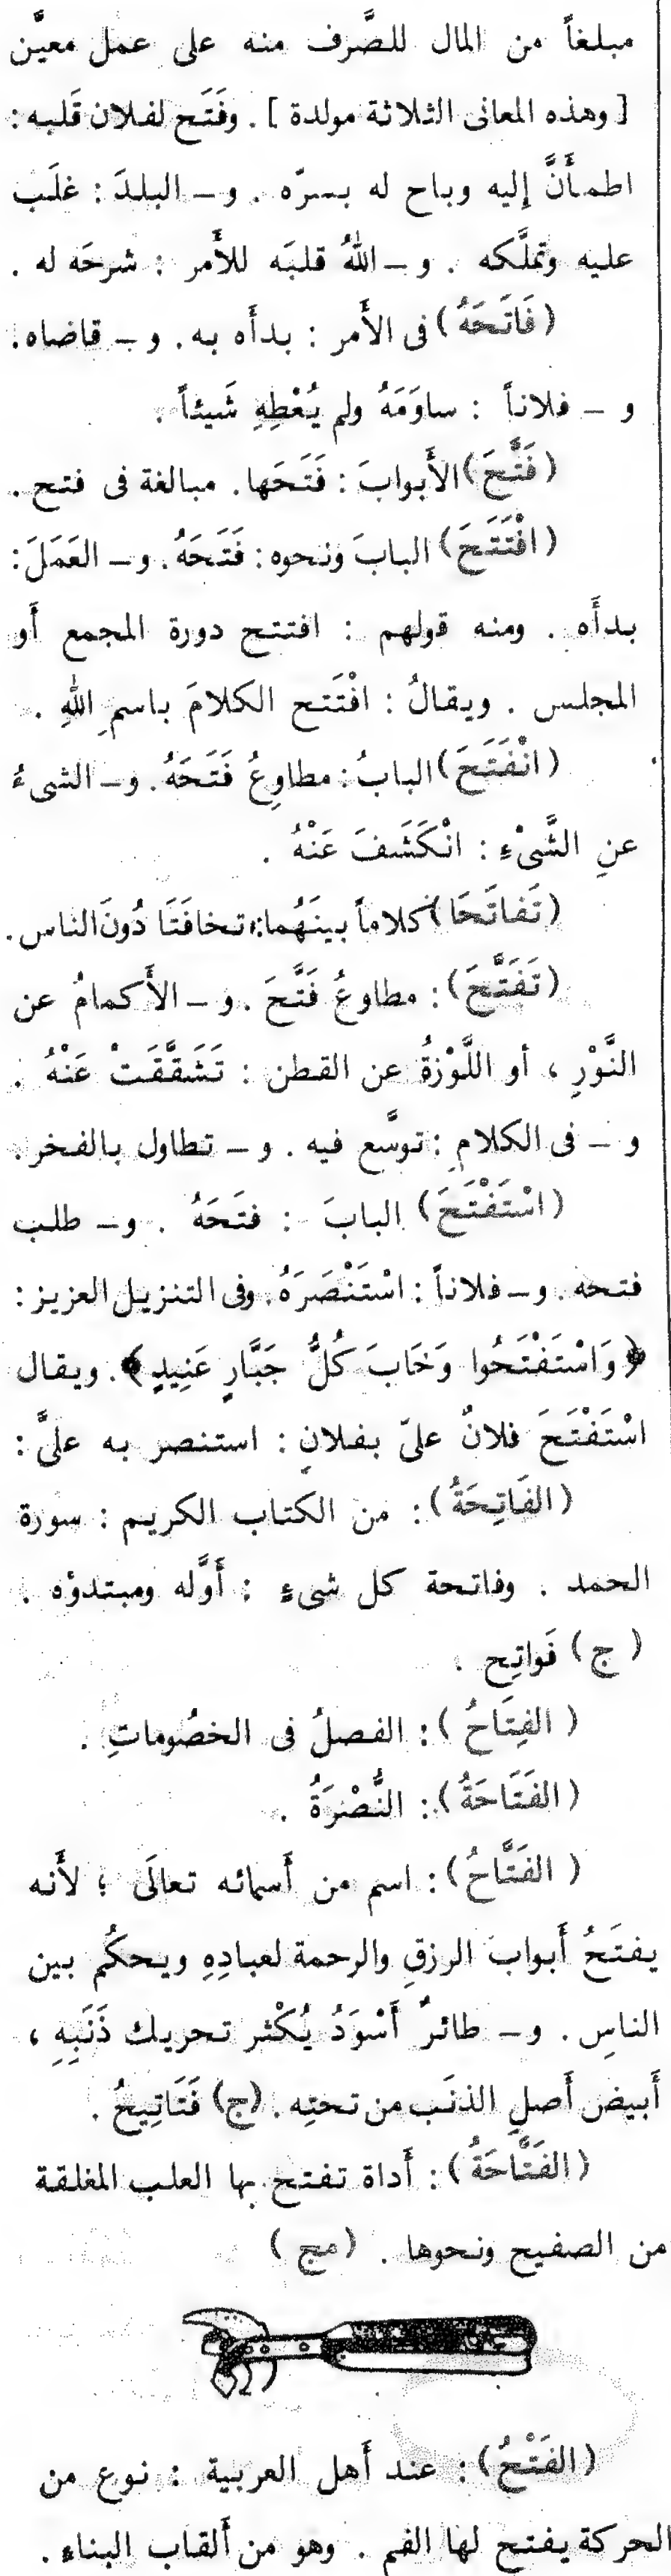 مبلغاً من المال للصَّرف منه على عمل معيَّن
[ وهذه المعانى الثلاثة مولدة ] . وفَتَح لفلان قَلبه :
اطمأَنَّ إليه وباح له بسرّه . و – البلدَ : غلَب
عليه وتملَّكه . و – اللهُ قلبَه للأَمر : شرحَه له .
( فَاتَحَهُ ) فى الأَمر : بدأَه به . و – قاضاه .
و – فلاناً : ساوَمَهُ ولم يُعْطِهِ شَيئاً .
( فَتَّحَ ) الأَبوابَ : فَتَحَها . مبالغة فى فتح .
( افْتَتَحَ ) البابَ ونحوه : فَتَحَهُ . و – العَمَلَ :
بدأَه . ومنه قولهم : افتتح دورة المجمع أَو
المجلس . ويقالُ : افْتَتح الكلامَ باسمِ اللهِ .
( انْفَتَحَ ) البابُ : مطاوِعُ فَتَحَهُ . و – الشىءُ
عنِ الشَّىْءِ : انْكَشَفَ عَنْهُ .
( تَفاتَحَا ) كلاماً بينَهُما : تخافَتَا دُونَ الناس .
( تَفَتَّحَ ) : مطاوعُ فَتَّحَ . و – الأَكمامُ عن
النَّوْرِ ، أو اللَّوْزةُ عن القطن : تَشَقَّقَتْ عَنْهُ .
و – فى الكلامِ : توسَّع فيه . و – تطاول بالفخر .
( اسْتَفْتَحَ ) البابَ : فتَحَهُ . و – طلب
فتحه . و – فلاناً : اسْتَنْصَرَهُ . وفى التنزيل العزيز :
﴿ وَاسْتَفْتَحُوا وَخَابَ كُلُّ جَبَّارٍ عَنِيدٍ ﴾ . ويقال
اسْتَفْتَحَ فلانٌ علىّ بفلانٍ : استنصر به علىَّ :
( الفَاتِحَةُ ) : من الكتاب الكريم : سورة
الحمد . وفاتحة كل شىءٍ : أَوَّله ومبتدؤه .
( ج ) فَواتِح .
( الفِتَاحُ ) : الفصلُ فى الخصُوماتِ .
( الفَتَاحَةُ ) : النُّصْرَةُ .
( الفَتَّاحُ ) : اسم من أَسمائه تعالَى ؛ لأَنه
يفتَحُ أَبوابَ الرزقِ والرحمة لعبادِهِ ويحكُم بين
الناسِ . و – طائرٌ أَسْوَدُ يُكْثر تحريك ذَنَبِهِ ،
أَبيض أَصلِ الذنَب من تحتِه . (ج) فَتَاتِيحُ .
( الفَتَّاحَةُ ) : أَداة تفتح بها العلب المغلقة
من الصفيح ونحوها . ( مج )
( الفَتْحُ ) : عند أَهل العربية : نوع من
الحركة يفتح لها الفم . وهو من أَلقاب البناءِ .